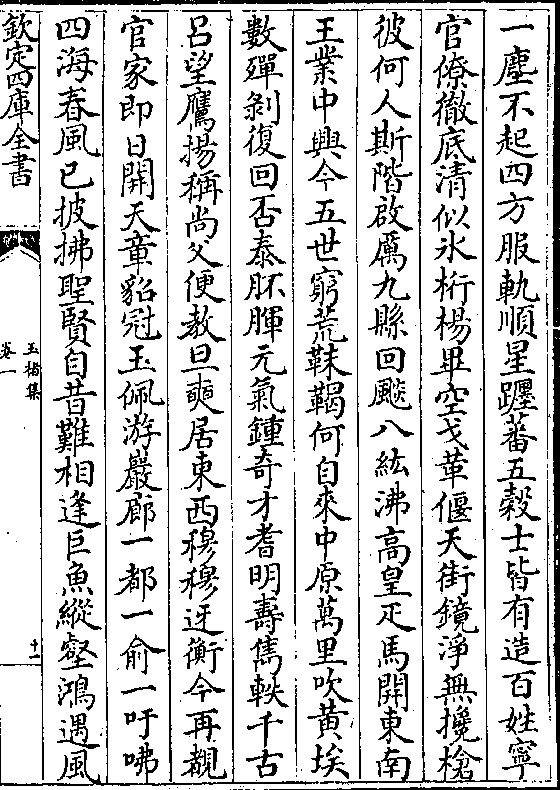 一塵不起四方服軌順星躔蕃五穀士皆有造百姓寧
官僚徹底清似氷桁楊畢空戈革偃天街鏡淨無攙槍
彼何人斯階啟厲九縣回飈八紘沸高皇疋馬開東南
王業中興今五世窮荒靺鞨何自來中原萬里吹黄埃
數殫剝復回否泰胚腪元氣鍾奇才耆明夀雋軼千古
吕望鷹揚稱尚父便教旦奭居東西穆穆迓衡今再覩
官家即日開天章貂冠玉佩游巖廊一都一俞一吁咈
四海春風已披拂聖賢自昔難相逢巨魚縱壑鴻遇風
欽定四庫全書
玉楮集
卷一
十一